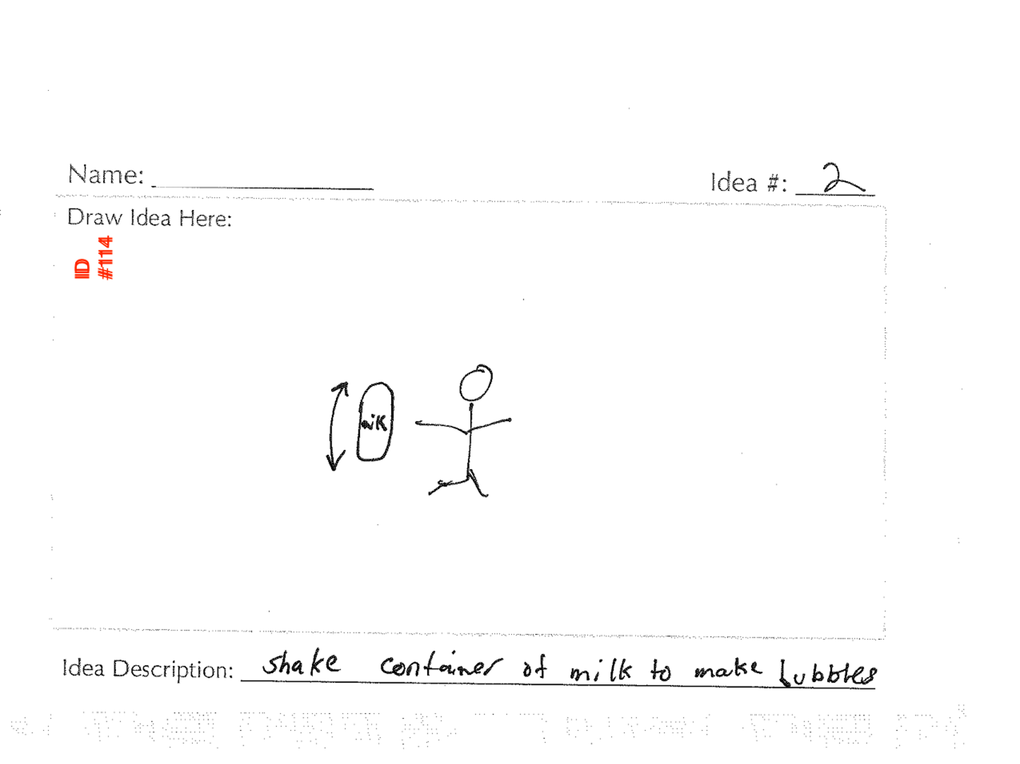 Name:
Idea #: 2
Draw Idea Here:
IID
#114
milk
Idea Description: shake container of milk to make bubbles